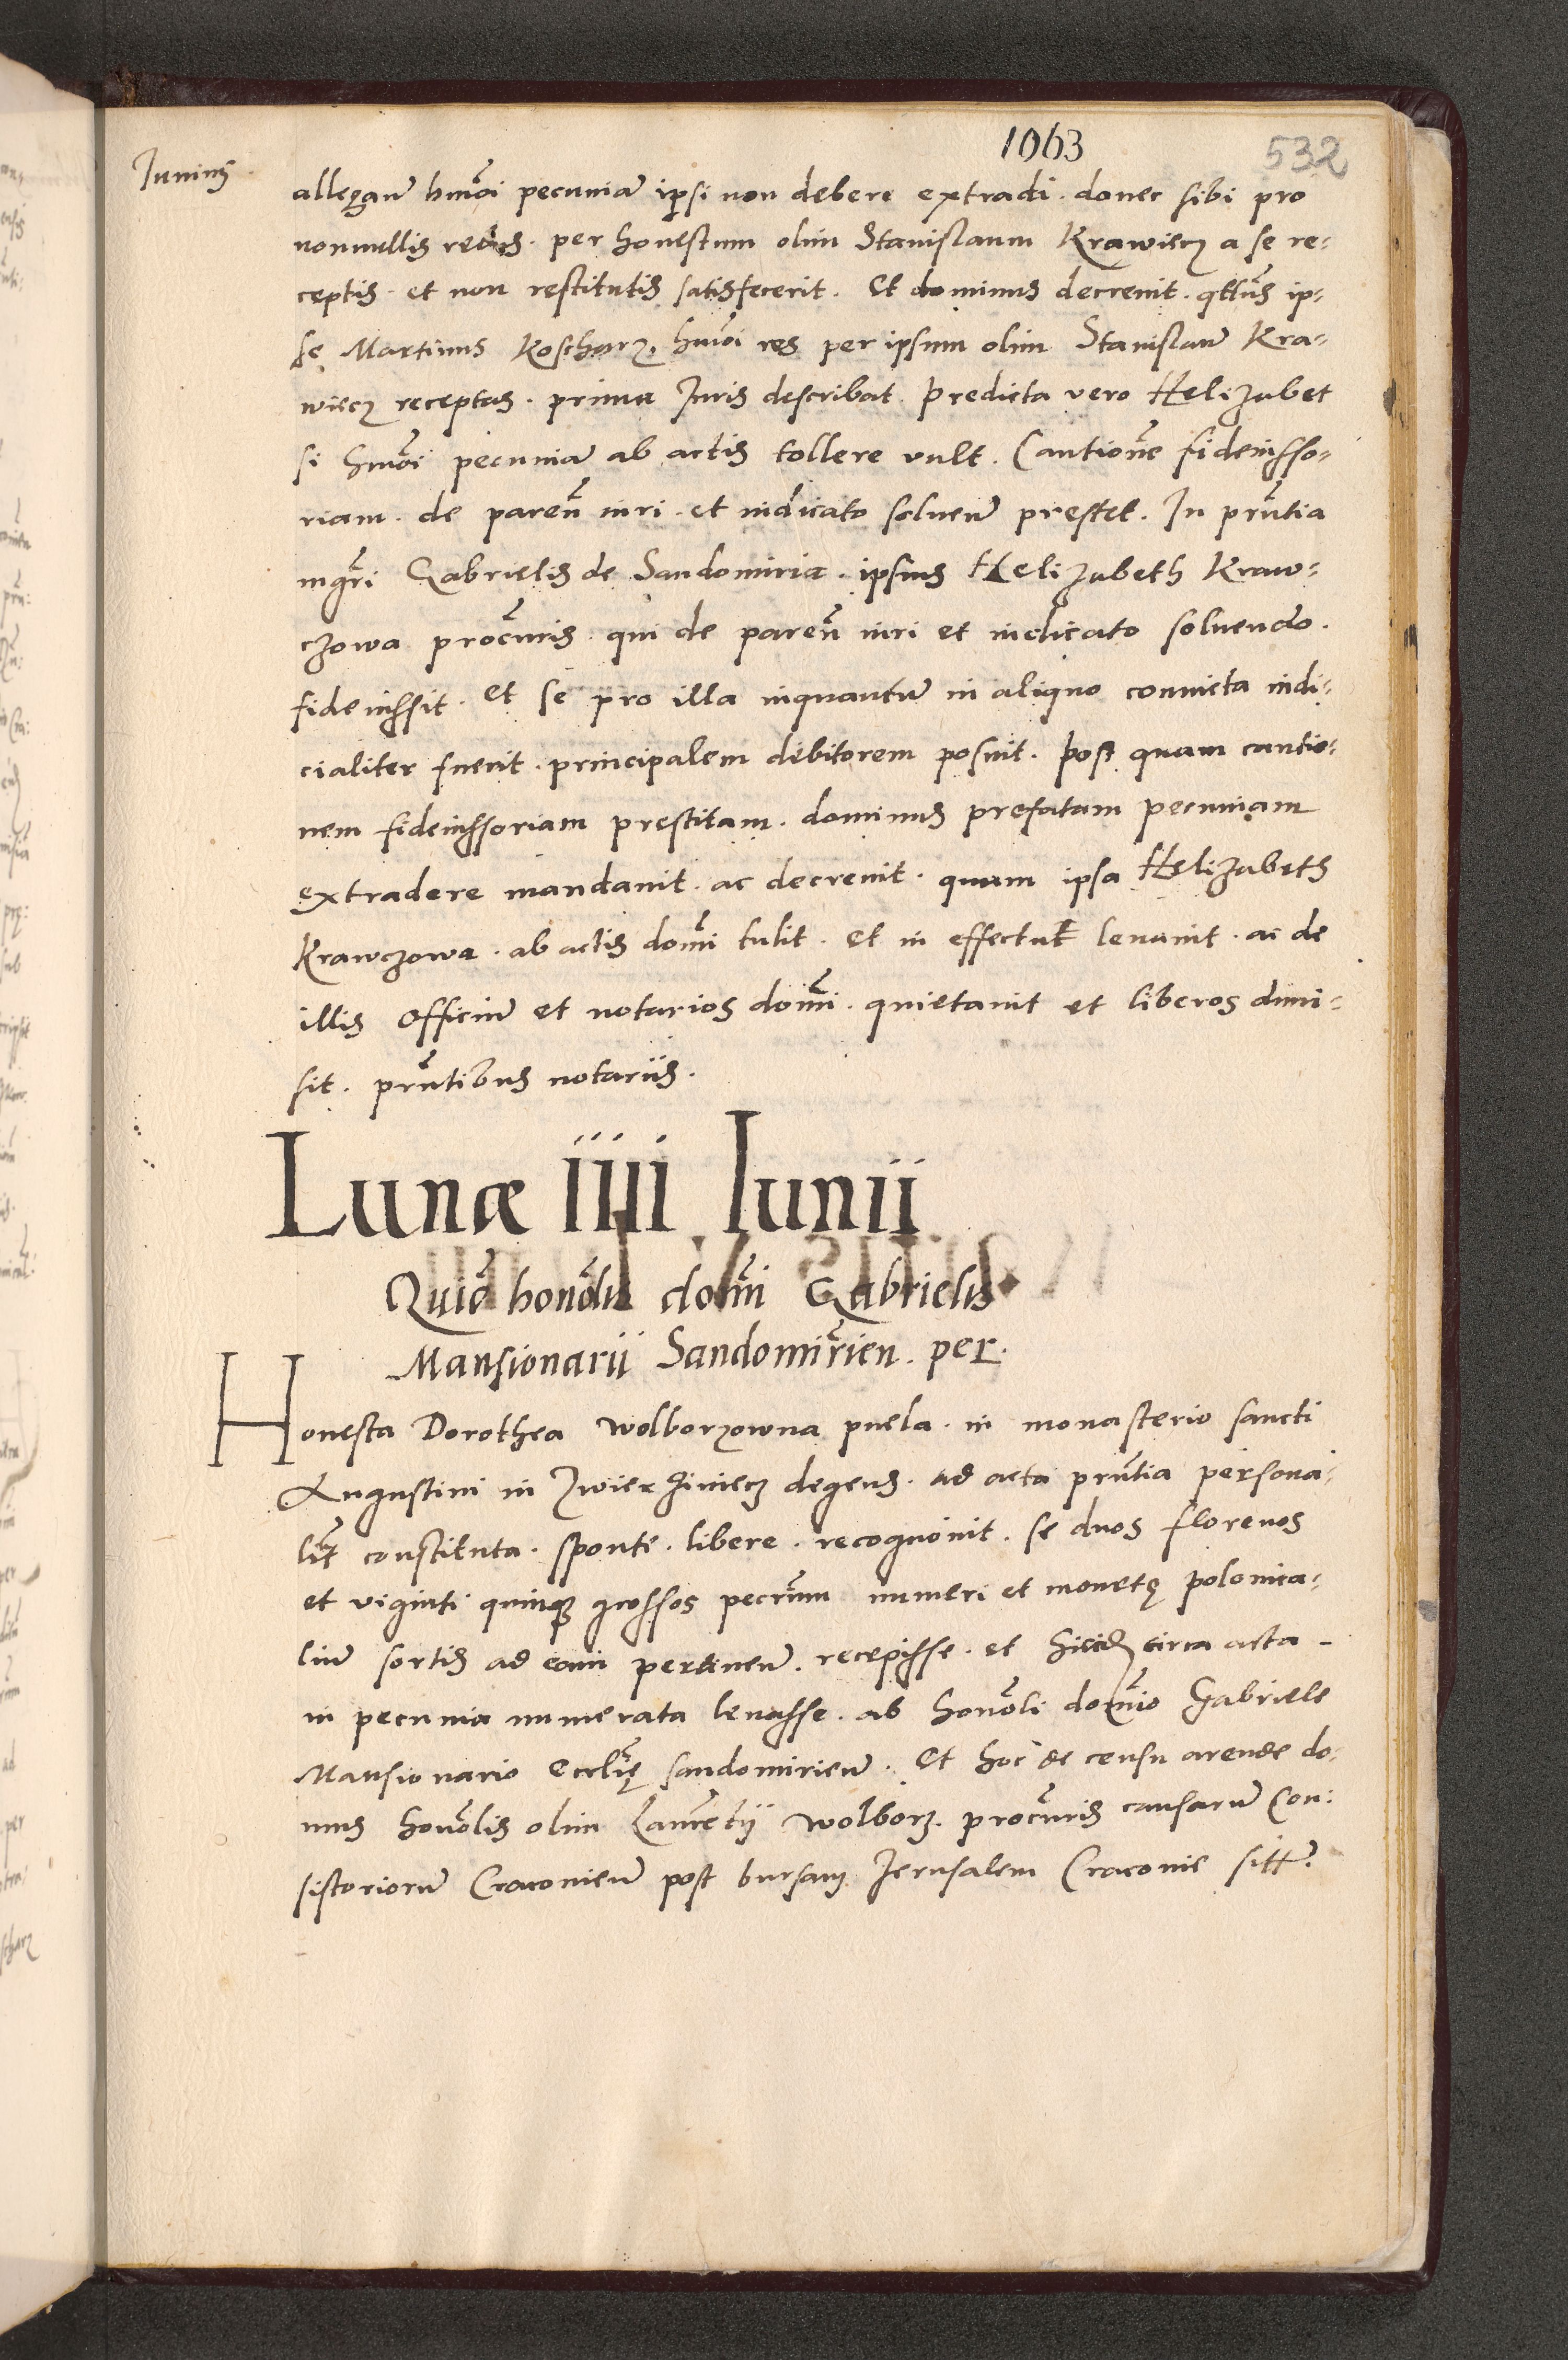 1063
532
Junius
allegan̄ hm̄oi pecuniā ipsi non debere extradi. donec sibi pro
nonnullis rebus. per honestum olim Stanislaum Krawiecz a se re-
ceptis. et non restitutis satisfecerit. Et dominus decreuit. qtus̄ ip-
se Martinus Koscharz. hm̄oi res per ipsum olim Stanislaū Kra-
wiecz receptas. prima Juris describat. Predicta vero Helizabet
si hm̄oi pecuniā ab actis tollere vult. Cautionē fideiusso-
riam. de paren̄ iuri. et iudicato soluen̄ prestet. In pn̄tia
mgr̄i Gabrielis de Sandomiria. ipsius Helizabeth Kraw-
czowa procur̄is. qui de paren̄ iuri et iudicato soluendo.
fideiussit. Et se pro illa inquantū in aliquo conuicta iudi-
cialiter fuerit. principalem debitorem posuit. Post quam cautio-
nem fideiussoriam prestitam. dominus prefatam pecuniam
extradere mandauit. ac decreuit. quam ipsa Helizabeth
Krawczowa. ab actis domī tulit. Et in effectu leuauit. ac de
illis officiū et notarios domī. quietauit et liberos dimi-
sit. pn̄tibus notariis.
Lunæ IIII Junii
Quiē honōlis domī Gabrielis
Mansionarii Sandomirien̄. per.
Honesta Dorothea Wolborzowna puela. in monasterio sancti
Augustini in Zwierziniecz degens. ad acta pn̄tia persona-
lit̄ constituta. sponte. libere. recognouit. se duos florenos
et viginti quinqȝ grossos pecr̄um numeri et monetę polonica-
liū sortis ad eam pertinen̄. recepisse. et circa acta -
in pecunia numerata leuasse. ab honōli domīo Gabriele
Mansionario Ecclīę sandomirien̄. Et hoc de censu arende do-
mus honōlis olim Laurētij Wolborz. procur̄is causarū Con-
sistoriorū Cracouien̄ post bursam Jerusalem Cracouie sitt̄.